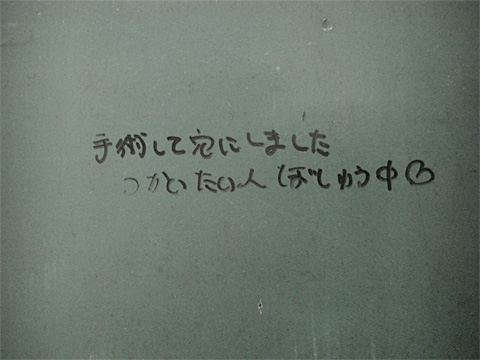 手術して穴にしました
つかいたい人 ぼしゅう中